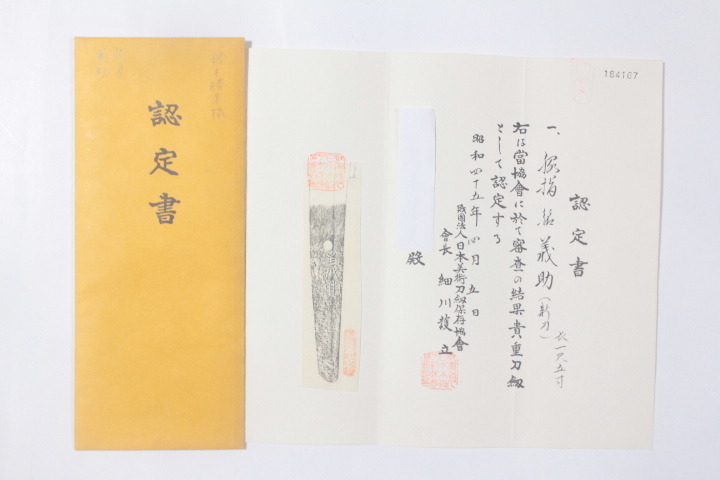 184167
認定書
一、脇指 銘 義助(新刀)
長一尺五寸
右は當協會に於て審査の結果貴重刀剱
として認定する
昭和四十五年四月五日
財團法人日本美術刀剱保存協會
會長 細川護立
殿
認定書